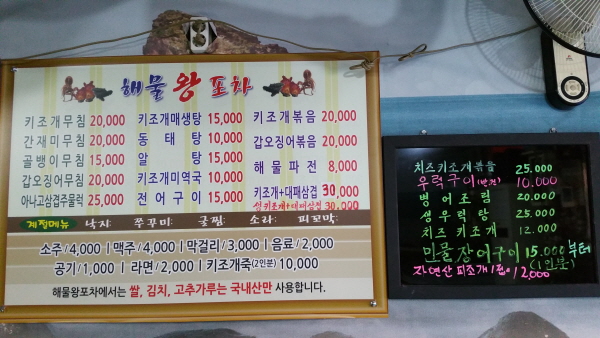 해물 왕 포차
키조개무침 20,000 키조개매생탕 15,000 키조개볶음 20,000
간재미무침 20,000 동태탕 10,000 갑오징어볶음 20,000
골뱅이무침 15,000 알탕 15,000 해물파전 8,000
갑오징어무침 20,000 키조개미역국 10,000 키조개+대패삼겹 30,000
아나고삼겹주물럭 25,000 전어구이 15,000 생키조개+대패삼겹 30,000
계절메뉴 낙지: 쭈꾸미: 굴찜: 소라: 피꼬막:
소주/4,000 |맥주/4,000| 막걸리/3,000 | 음료/2,000
공기/1,000 | 라면/2,000 | 키조개죽(2인분) 10,000
해물왕포차에서는 쌀, 김치, 고추가루는 국내산만 사용합니다.
치즈키조개볶음 25.000
우럭구이(반건) 10,000
병어조림 20.000
생우럭탕 25.000
치즈키조개 12.000
민물장어구이 15.000부터
(1인분)
자연산 피조개 1접시 2,000